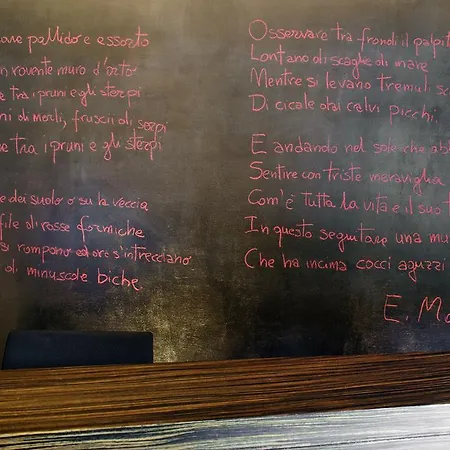 pallido e assorto
rovente muro d'orto
tra i pruni e gli sterpi
di merli, frusci di serpi
tra i pruni e gli sterpi
dei suolo o su la veccia
file di rosse formiche
rompono ed ora s'intrecciano
di minuscole biche.
Osservare tra frondi il
Lontano di scaglie di mare
Mentre si levano tremuli
Di cicale dai calvi picchi.
E andando nel sole che
Sentire con triste meraviglia
Com'è tutta la vita e il suo
In questo seguitare una
Che ha incima cocci aguzzi
E.